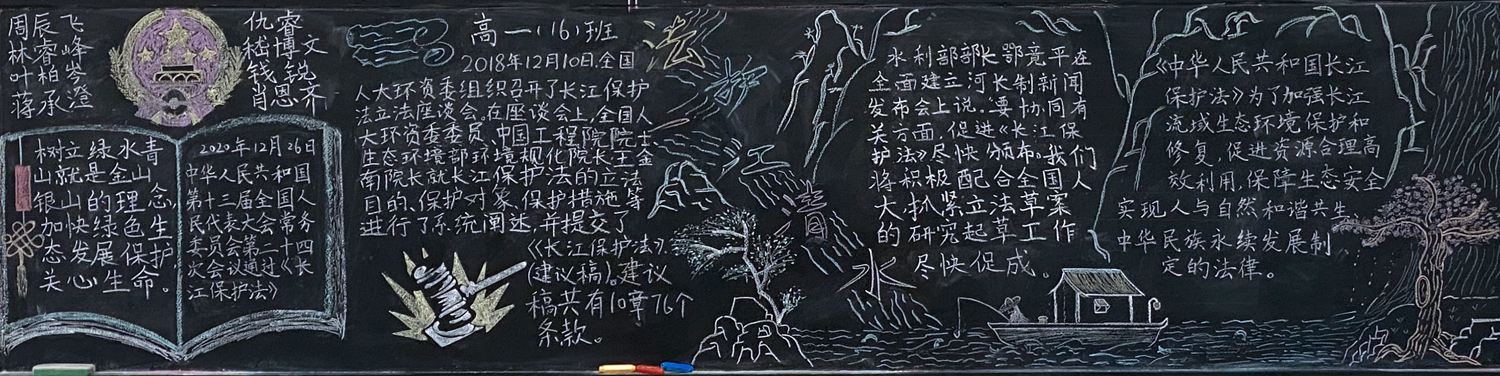 周辰飞
林睿峰
叶柏岑
蒋承澄
仇睿
嵇博文
钱锐
肖思齐
树立绿水青
山就是金山
银山的理念，
加快绿色生
态发展保护
关心生命。
2020年12月26日
中华人民共和国
第十三届全国人
民代表大会常务
委员会第二十四
次会议通过《长
江保护法》
高一（16）班
2018年12月10日，全国
人大环资委组织召开了长江保护
法立法座谈会。在座谈会上，全国人
大环资委委员、中国工程院院士、
生态环境部环境规化院长王金
南院长就长江保护法的立法
目的、保护对象、保护措施等
进行了系统阐述，并提交了
《长江保护法》
（建议稿）。建议
稿共有10章76个
条款。
法
护
清
水
水利部部长鄂竟平在
全面建立河长制新闻
发布会上说，要协同有
关方面，促进《长江保
护法》尽快颁布。我们
将积极配合全国人
大，扒紧立法草案
的研究起草工作
尽快促成。
《中华人民共和国长江
保护法》为了加强长江
流域生态环境保护和
修复，促进资源合理高
效利用，保障生态安全
实现人与自然和谐共生、
中华民族永续发展制
定的法律。